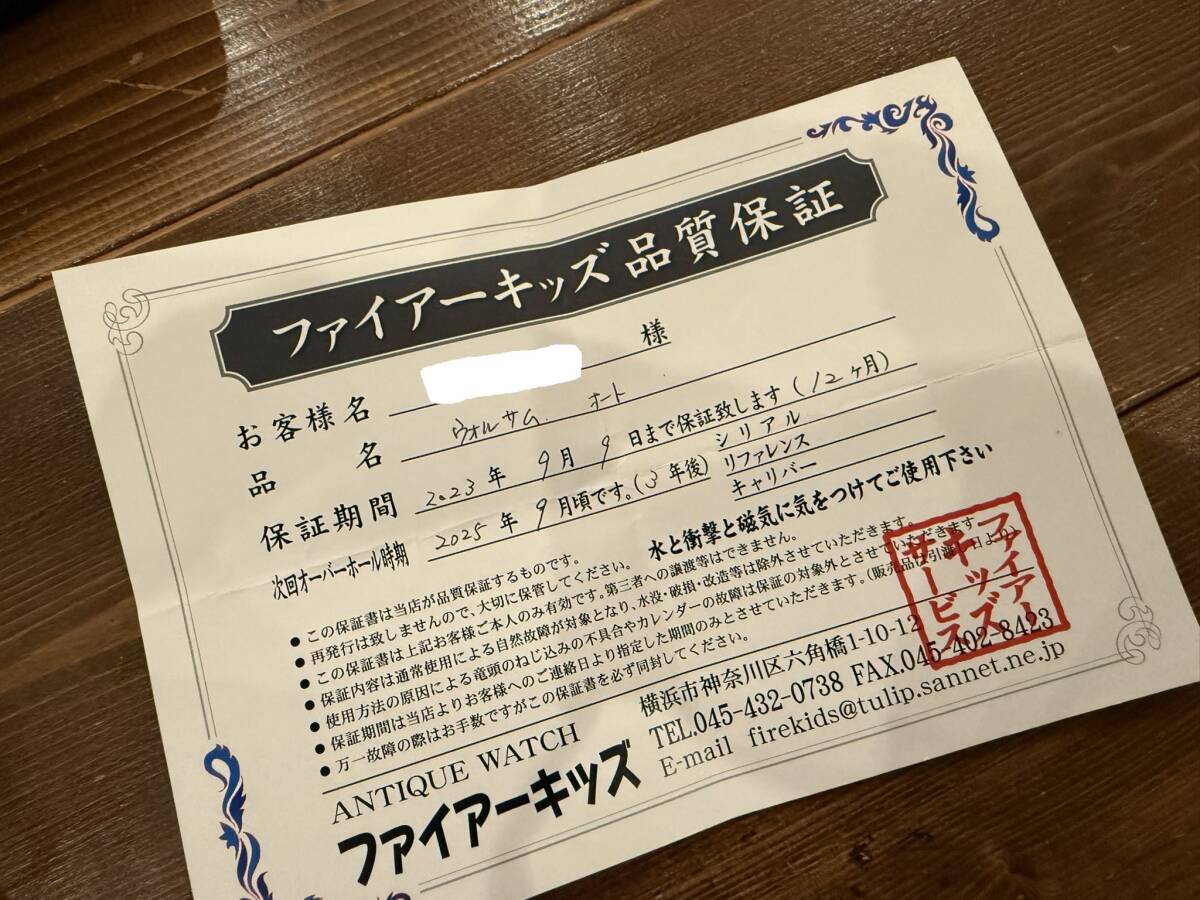 ファイアーキッズ品質保証
お客様名 様
品名 ウォルサム. オート
保証期間 2023年 9月 9日まで保証致します(12ヶ月)
次回オーバーホール時期 2025年 9月頃です。(3年後)
シリアル
リファレンス
キャリバー
水と衝撃と磁気に気をつけてご使用下さい
● この保証書は当店が品質保証するものです。
● 再発行は致しませんので、大切に保管してください。
● この保証書は上記お客様ご本人のみ有効です。第三者への譲渡等はできません。
● 保証内容は通常使用による自然故障が対象となり、水没・破損・改造等は除外させていただきます。
● 使用方法の原因による竜頭のねじ込みの不具合やカレンダーの故障は保証の対象外とさせていただきます。
● 保証期間は当店よりお客様へのご連絡日より指定した期間のみとさせていただきます。(販売品は引渡し日より)
● 万一故障の際はお手数ですがこの保証書を必ず同封してください。
ファイアー
キッズ
サービス
ANTIQUE WATCH
ファイアーキッズ
横浜市神奈川区六角橋1-10-12
TEL.045-432-0738 FAX.045-402-8423
E-mail firekids@tulip.sannet.ne.jp